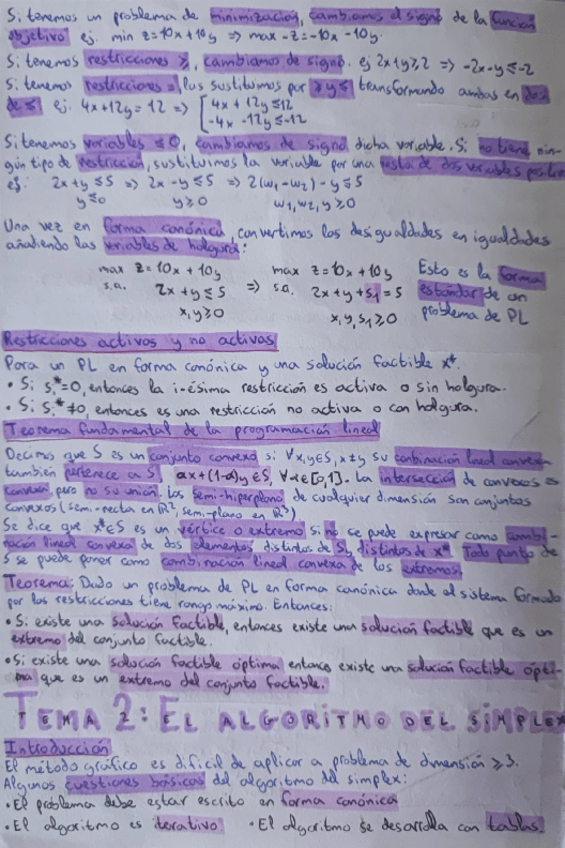 Si tenemos un problema de minimización, cambiamos el signo de la función
objetivo ej. min z=10x+10y => max -z=-10x-10y.
Si tenemos restricciones ≥, cambiamos de signo. ej 2x+y≥2 => -2x-y≤-2
Si tenemos restricciones =, las sustituimos por ≥ y ≤ transformando ambas en dos
de ≤. ej. 4x+12y=12 => [4x+12y≤12
-4x-12y≤-12
Si tenemos variables ≤0, cambiamos de signo dicha variable. Si no tiene nin-
gún tipo de restricción, sustituimos la variable por una resta de dos variables positivas
ej: 2x+y≤5 => 2x-y≤5 => 2(w₁-w₂)-y≤5
y≤0 y≥0 w₁,w₂,y≥0
Una vez en forma canónica, convertimos las desigualdades en igualdades
añadiendo las variables de holgura:
max z=10x+10y max z=10x+10y Esto es la forma
s.a. 2x+y≤5 => s.a. 2x+y+s₁=5 estándar de un
x,y≥0 x,y,s₁≥0 problema de PL
Restricciones activas y no activas
Para un PL en forma canónica y una solución factible x*.
• Si sᵢ*=0, entonces la i-ésima restricción es activa o sin holgura.
• Si sᵢ*≠0, entonces es una restricción no activa o con holgura.
Teorema fundamental de la programación lineal
Decimos que S es un conjunto convexo si ∀x,y∈S, x≠y su combinación lineal convexa
también pertenece a S. αx+(1-α)y∈S, ∀α∈[0,1]. La intersección de convexos es
convexa, pero no su unión. Los semi-hiperplano de cualquier dimensión son conjuntos
convexos (semi-recta en R², semi-plano en R³)
Se dice que x*∈S es un vértice o extremo si no se puede expresar como combi-
nación lineal convexa de dos elementos distintos de S, distintos de x*. Todo punto de
S se puede poner como combinación lineal convexa de los extremos.
Teorema: Dado un problema de PL en forma canónica donde el sistema formado
por las restricciones tiene rango máximo. Entonces:
• Si existe una solución factible, entonces existe una solución factible que es un
extremo del conjunto factible.
• Si existe una solución factible óptima entonces existe una solución factible ópti-
ma que es un extremo del conjunto factible.
TEMA 2: EL ALGORITMO DEL SIMPLEX
Introducción
El método gráfico es difícil de aplicar a problema de dimensión ≥3.
Algunos cuestiones básicas del algoritmo del simplex:
• El problema debe estar escrito en forma canónica
• El algoritmo es iterativo. • El algoritmo se desarrolla con tablas.